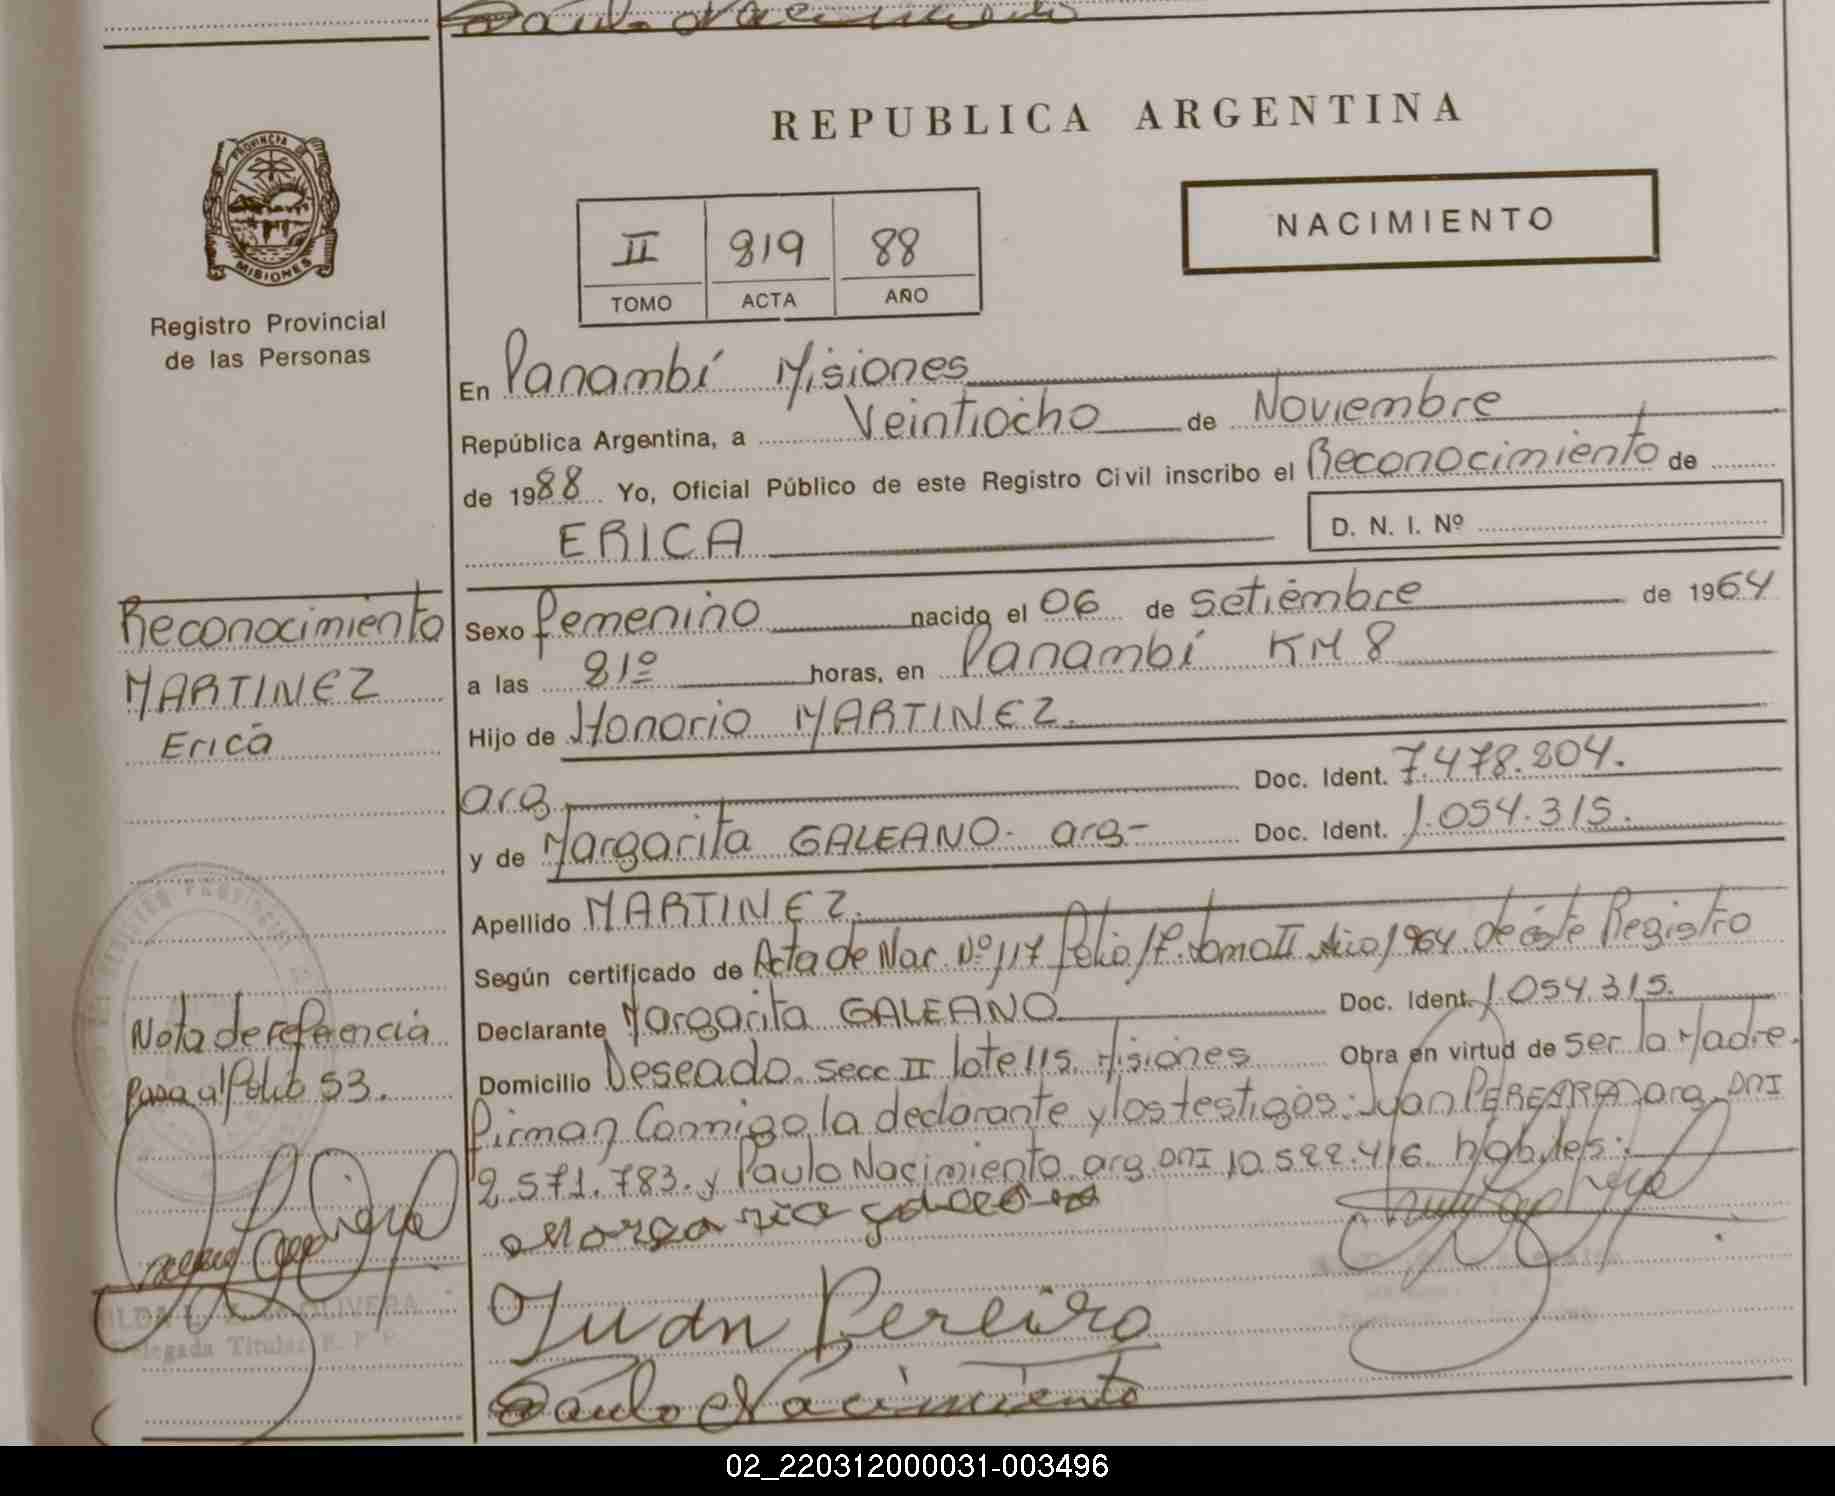 Paulo Nacimiento
PROVINCIA DE
MISIONES
Registro Provincial
de las Personas
REPUBLICA ARGENTINA
NACIMIENTO
II 219 88
TOMO ACTA AÑO
En Panambí Misiones
República Argentina, a Veintiocho de Noviembre
de 1988 Yo, Oficial Público de este Registro Civil inscribo el Reconocimiento de
ERICA D. N. I. Nº
Reconocimiento
MARTINEZ
Erica
Sexo femenino nacido el 06 de Setiembre de 1964
a las 21º horas, en Panambí KM 8
Hijo de Honorio MARTINEZ.
arg Doc. Ident. 7.478.204.
y de Margarita GALEANO- arg- Doc. Ident. 1.054.315.
Apellido MARTINEZ.
Según certificado de Acta de Nac. Nº 117 folio 17. tomo II Año 1964. de éste Registro
Declarante Margarita GALEANO Doc. Ident. 1.054.315.
Domicilio Deseado. secc II lote 115. Misiones Obra en virtud de ser la Madre.
firman Conmigo la declarante y los testigos: Juan PEREIRA arg. DNI
2.571.783. y Paulo Nacimiento. arg DNI 10.522.416. hábiles:
Nota de referencia
pasa al folio 53.
Margarita galeano
Juan Pereira
Paulo Nacimiento
OLIVERA
Delegada Titular R. P. P.
02_220312000031-003496